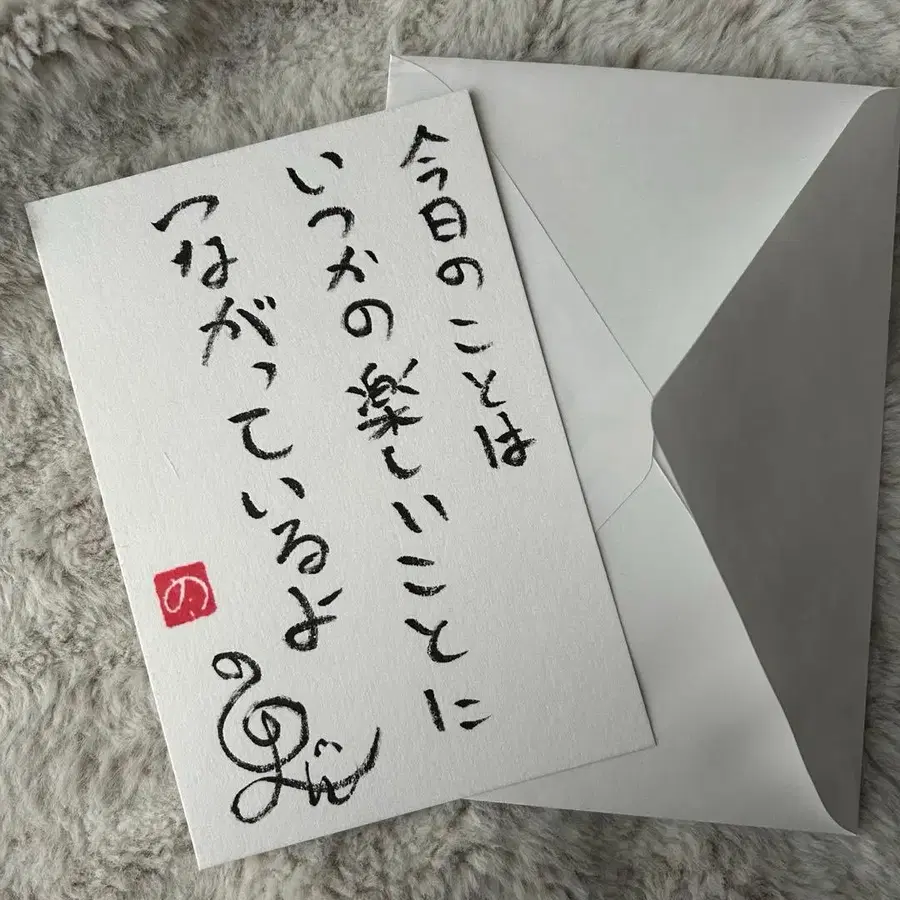 今日のことは
いつかの楽しいことに
つながっているよ
の